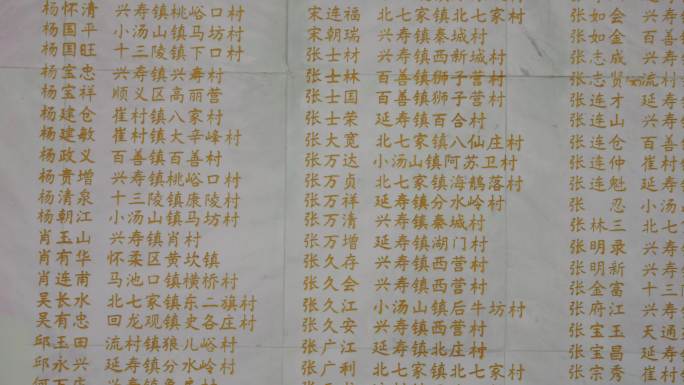 杨怀清 兴寿镇桃峪口村
杨国平 小汤山镇马坊村
杨国旺 十三陵镇下口村
杨宝忠 兴寿镇兴寿村
杨宝祥 顺义区高丽营
杨建仓 崔村镇八家村
杨建敏 崔村镇大辛峰村
杨政义 百善镇百善村
杨贵增 兴寿镇桃峪口村
杨清泉 十三陵镇康陵村
杨朝江 小汤山镇马坊村
肖玉山 兴寿镇肖村
肖有华 怀柔区黄坎镇
肖连甫 马池口镇横桥村
吴长水 北七家镇东二旗村
吴有忠 回龙观镇史各庄村
邱玉田 流村镇狼儿峪村
邱永兴 延寿镇分水岭村
宋连福 北七家镇北七家村
宋朝瑞 兴寿镇秦城村
张士材 兴寿镇西新城村
张士林 百善镇狮子营村
张士国 百善镇狮子营村
张士荣 延寿镇百合村
张大宽 北七家镇八仙庄村
张万达 小汤山镇阿苏卫村
张万贞 北七家镇海鹊落村
张万祥 延寿镇分水岭村
张万清 兴寿镇秦城村
张万增 延寿镇湖门村
张久存 兴寿镇西营村
张久会 兴寿镇西营村
张久江 小汤山镇后牛坊村
张久安 兴寿镇西营村
张广江 延寿镇北庄村
张广利 北七家镇北七家村
张如会 兴寿
张如金 百善
张志成 兴寿
张志贤 流村
张连才 延寿
张连山 兴寿
张连仓 百善
张连仲 崔村
张连魁 延寿
张忍 小汤
张林三 北七
张明录 兴寿
张明新 兴寿
张金富 十三
张府江 兴寿
张宝玉 天通
张宝昌 延寿
张宗秀 崔村